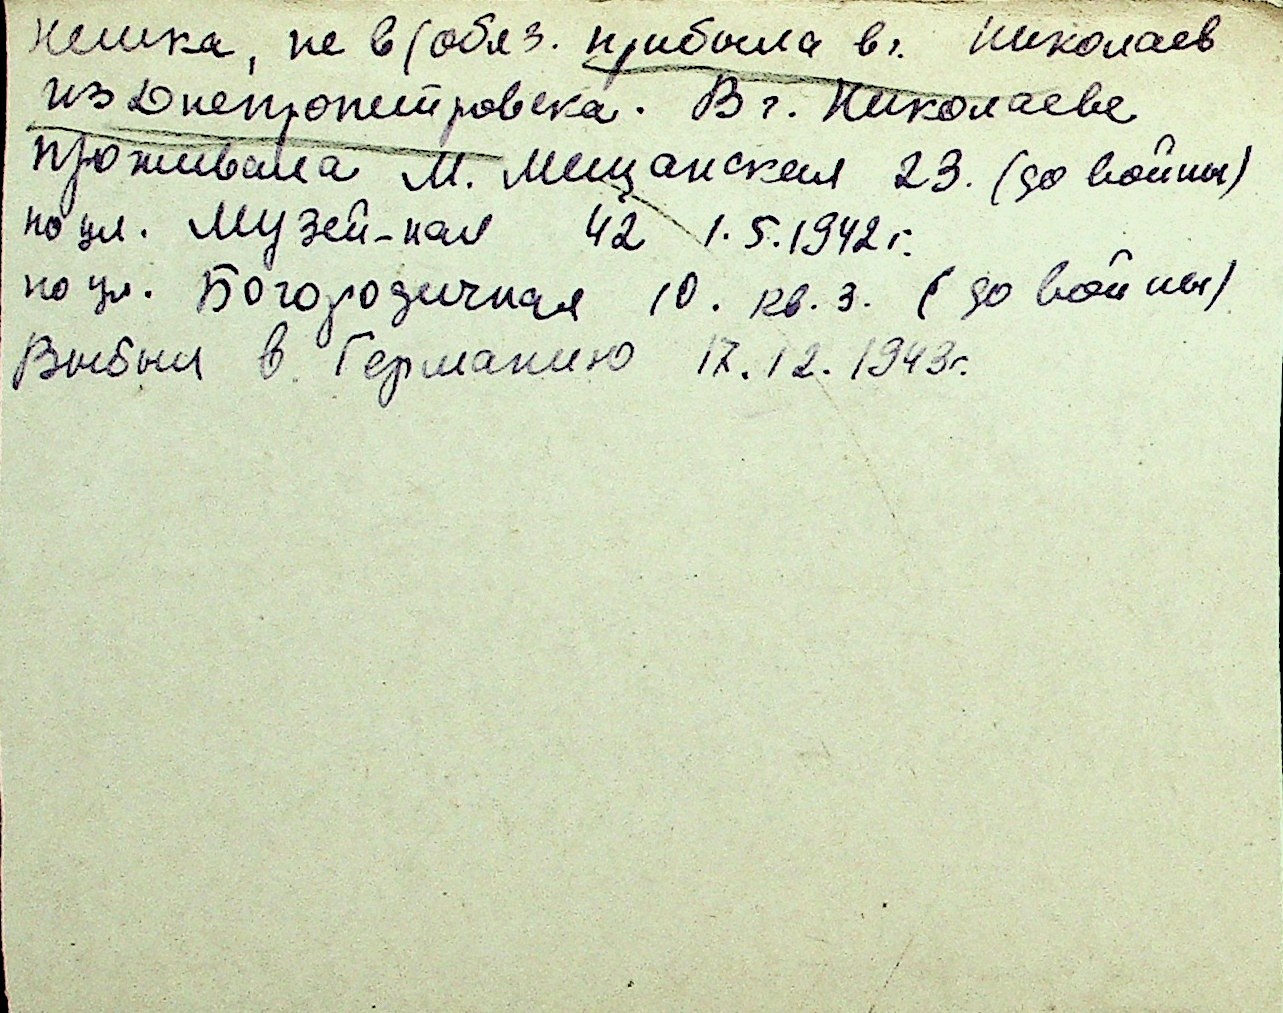 немка, не в/обяз. прибыла в г. Николаев
из Днепропетровска. В г. Николаеве
проживала М. Мещанская 23. (до войны)
по ул. Музей-ная 42 1.5.1942 г.
по ул. Богородичная 10. кв. 3. (до войны)
Выбыл в Германию 17.12.1943г.